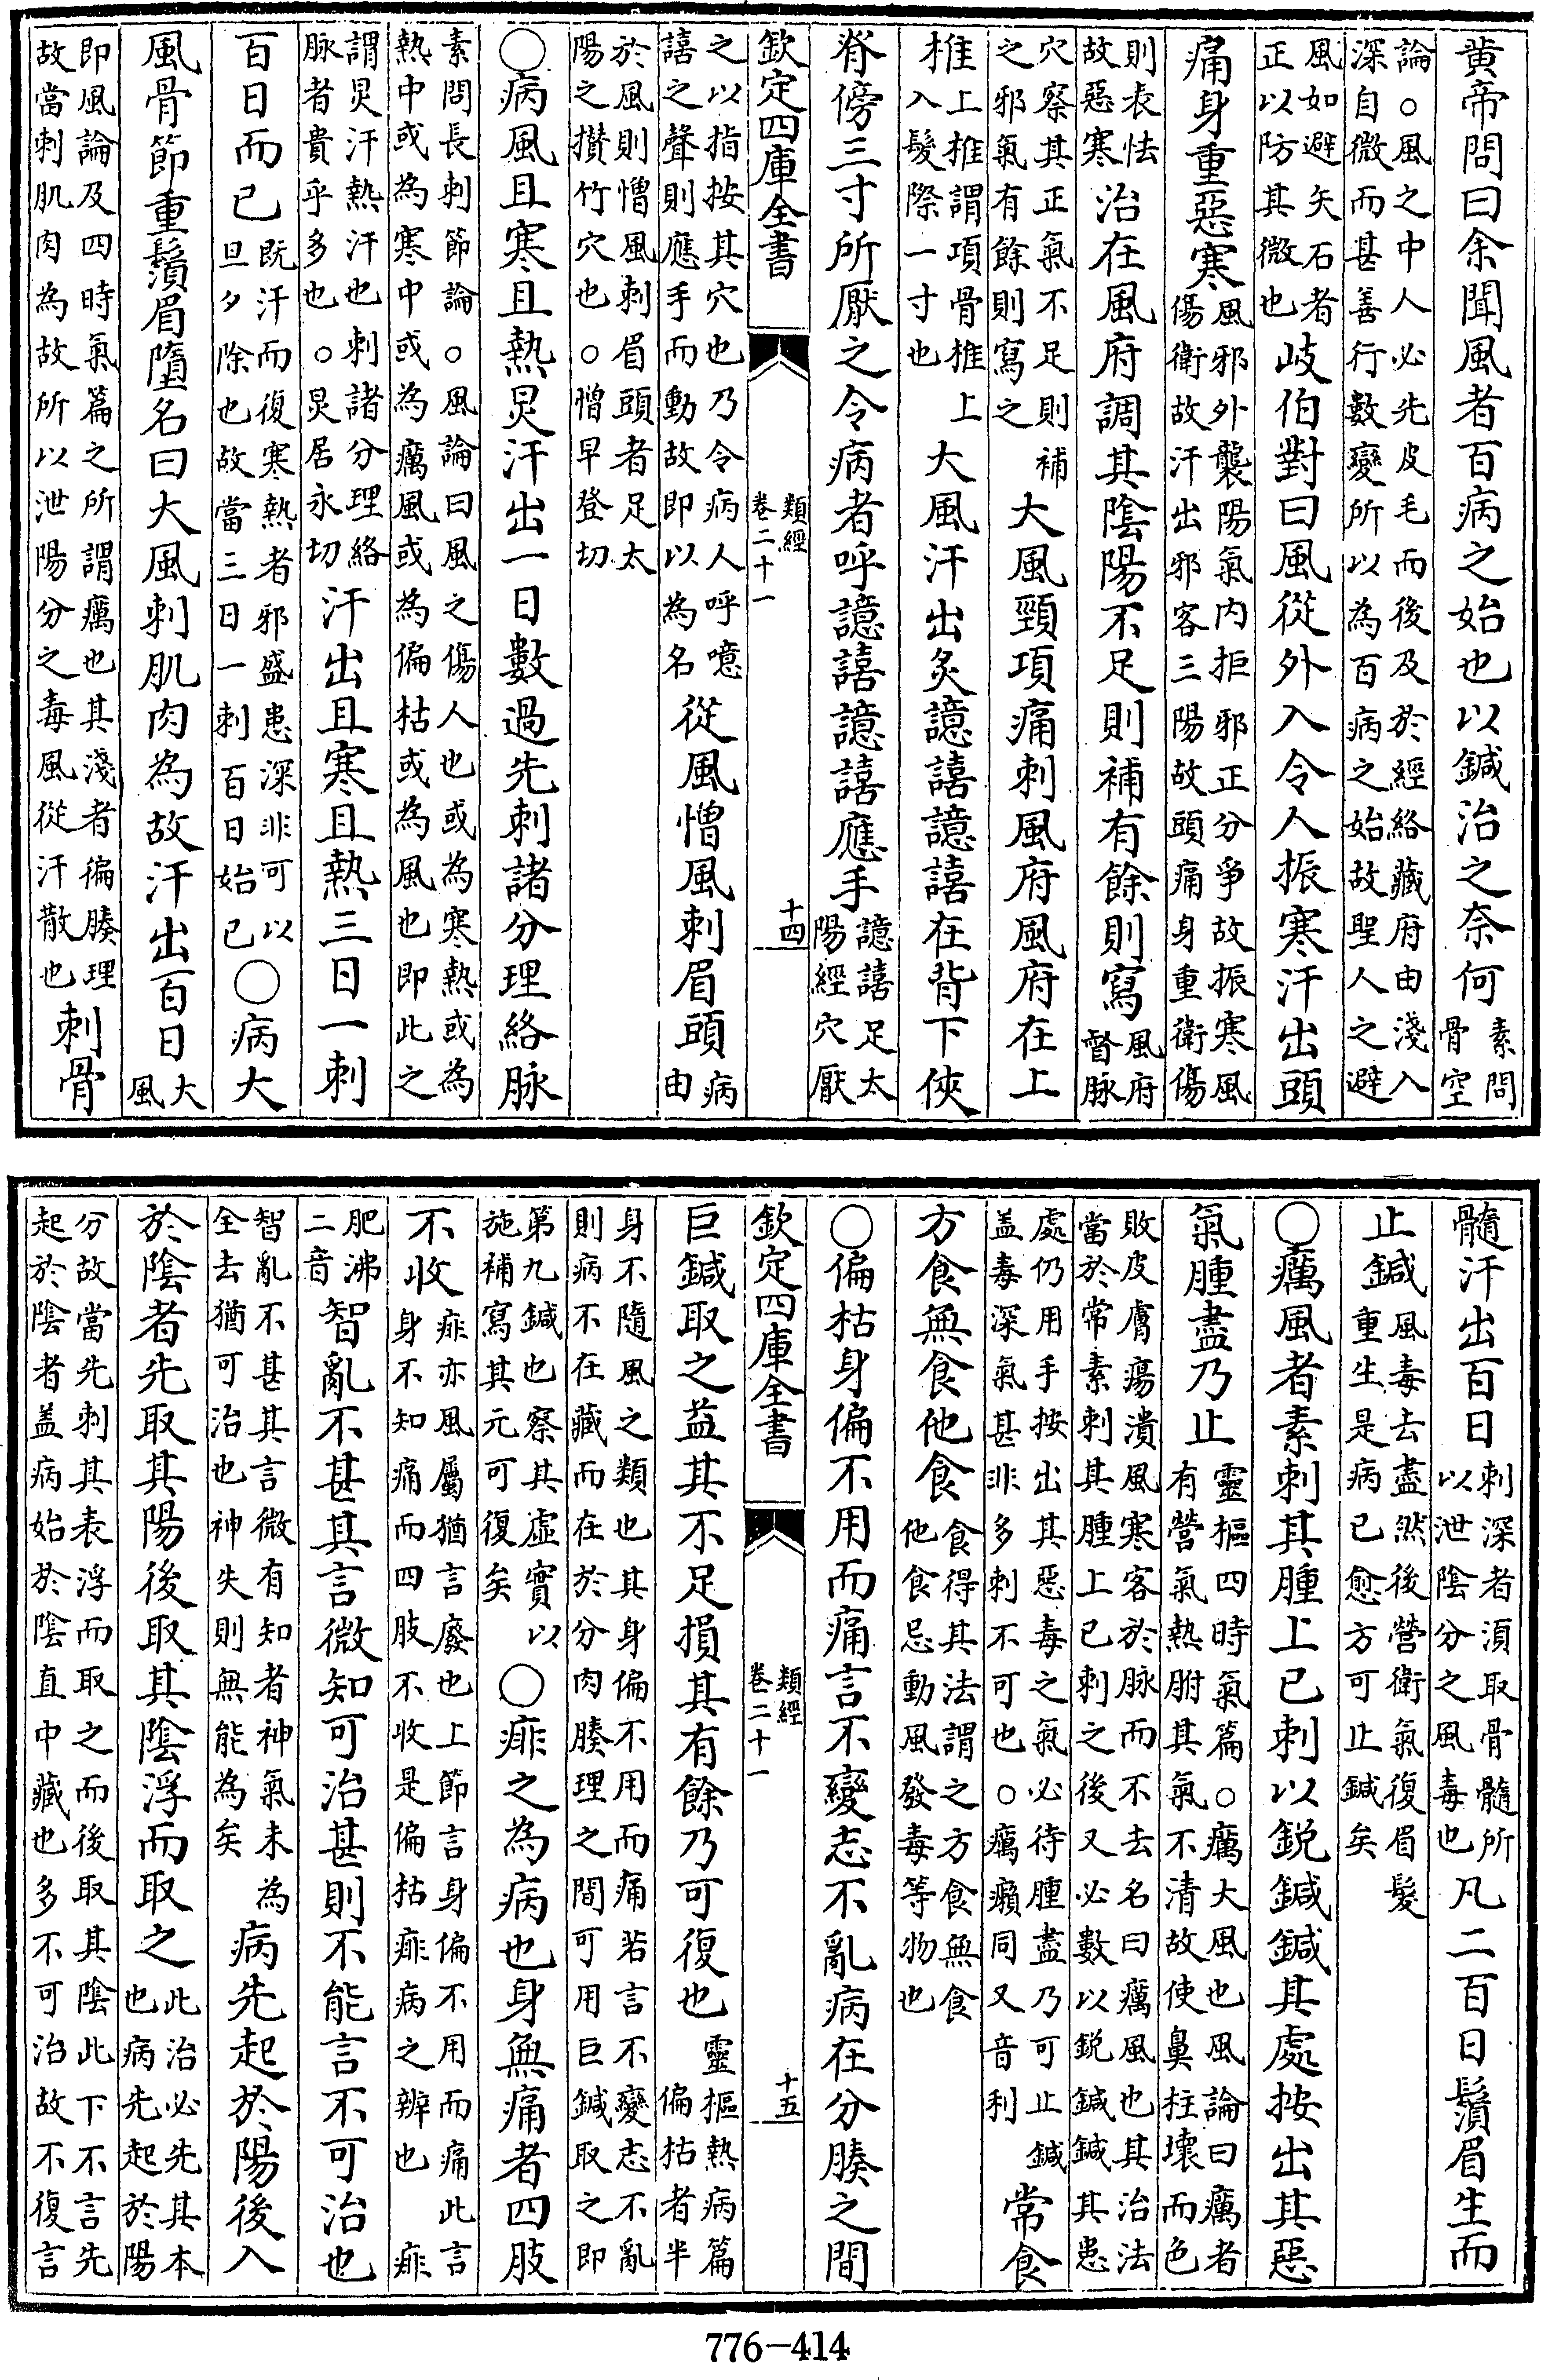 黄帝問曰余聞風者百病之始也以鍼治之奈何素問骨空
論○風之中人必先皮毛而後及於經絡藏府由淺入深自微而甚善行數變所以為百病之始故聖人之避
風如避矢石者正以防其微也岐伯對曰風從外入令人振寒汗出頭
痛身重惡寒風邪外襲陽氣内拒邪正分爭故振寒風傷衛故汗出邪客三陽故頭痛身重衛傷
則表怯故惡寒治在風府調其陰陽不足則補有餘則寫風府督脉
穴察其正氣不足則補之邪氣有餘則寫之大風頸項痛刺風府風府在上
椎上椎謂項骨椎上入髮際一寸也大風汗出灸譩譆譩譆在背下俠
脊傍三寸所厭之令病者呼譩譆譩譆應手譩譆足太陽經穴厭
欽定四庫全書 類經卷二十一 十四
之以指按其穴也乃令病人呼噫譆之聲則應手而動故即以為名從風憎風刺眉頭病由
於風則憎風刺眉頭者足太陽之攅竹穴也○憎早登切
○病風且寒且熱炅汗出一日數過先刺諸分理絡脉
素問長刺節論○風論曰風之傷人也或為寒熱或為熱中或為寒中或為癘風或為偏枯或為風也即此之
謂炅汗熱汗也刺諸分理絡脉者貴乎多也○炅居永切汗出且寒且熱三日一刺
百日而已既汗而復寒熱者邪盛患深非可以旦夕除也故當三日一刺百日始已○病大
風骨節重鬚眉墮名曰大風刺肌肉為故汗出百日大風
即風論及四時氣篇之所謂癘也其淺者徧腠理故當刺肌肉為故所以泄陽分之毒風從汗散也刺骨
髓汗出百日刺深者須取骨髓所以泄陰分之風毒也凡二百日鬚眉生而
止鍼風毒去盡然後營衛氣復眉髮重生是病已愈方可止鍼矣
○癘風者素刺其腫上已刺以鋭鍼鍼其處按出其惡
氣腫盡乃止靈樞四時氣篇○癘大風也風論曰癘者有營氣熱胕其氣不清故使鼻柱壞而色
敗皮膚瘍潰風寒客於脉而不去名曰癘風也其治法當於常素刺其腫上已刺之後又必數以鋭鍼鍼其患
處仍用手按出其惡毒之氣必待腫盡乃可止鍼盖毒深氣甚非多刺不可也○癘癩同又音利常食
方食無食他食食得其法謂之方食無食他食忌動風發毒等物也
○偏枯身偏不用而痛言不變志不亂病在分腠之間
欽定四庫全書 類經卷二十一 十五
巨鍼取之益其不足損其有餘乃可復也靈樞熱病篇偏枯者半
身不隨風之類也其身偏不用而痛若言不變志不亂則病不在藏而在於分肉腠理之間可用巨鍼取之即
第九鍼也察其虛實以施補寫其元可復矣○痱之為病也身無痛者四肢
不收痱亦風屬猶言廢也上節言身偏不用而痛此言身不知痛而四肢不收是偏枯痱病之辨也痱
肥沸二音智亂不甚其言微知可治甚則不能言不可治也
智亂不甚其言微有知者神氣未為全去猶可治也神失則無能為矣病先起於陽後入
於陰者先取其陽後取其陰浮而取之此治必先其本也病先起於陽
分故當先刺其表浮而取之而後取其陰此下不言先起於陰者盖病始於陰直中藏也多不可治故不復言
776-414